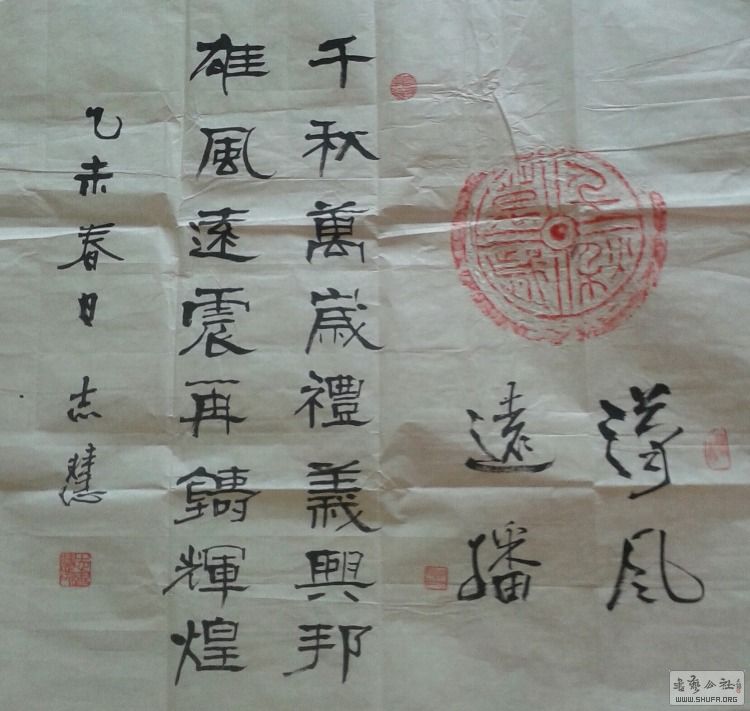 漢风
遠播
千秋萬歲禮義興邦
雄風遠震再鑄輝煌
乙未春日 志慧
書藝公社
WWW.SHUFA.ORG